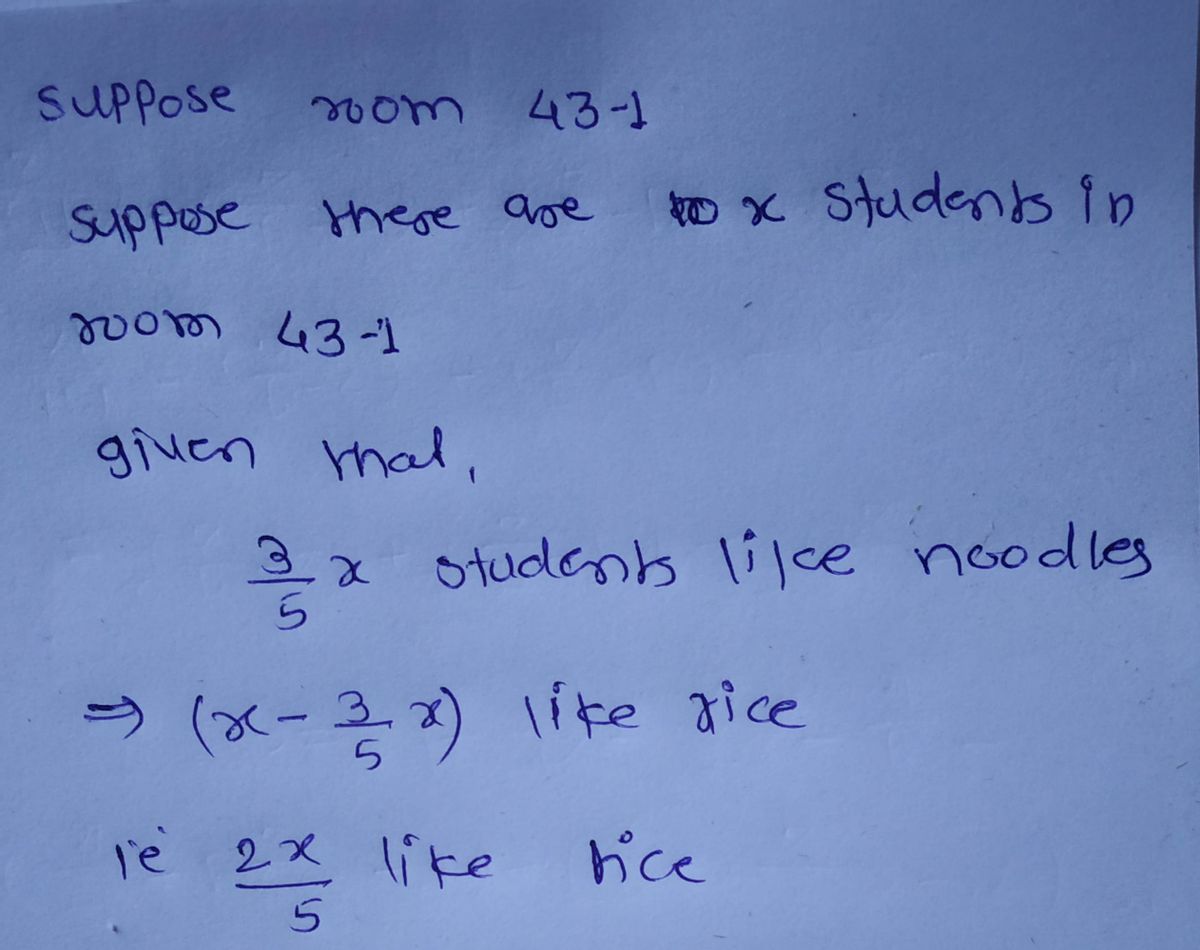 suppose room 43-1
suppose there are x students in
room 43-1
given that,
3/5 x students like noodles
⇒ (x - 3/5 x) like rice
ie 2x/5 like rice